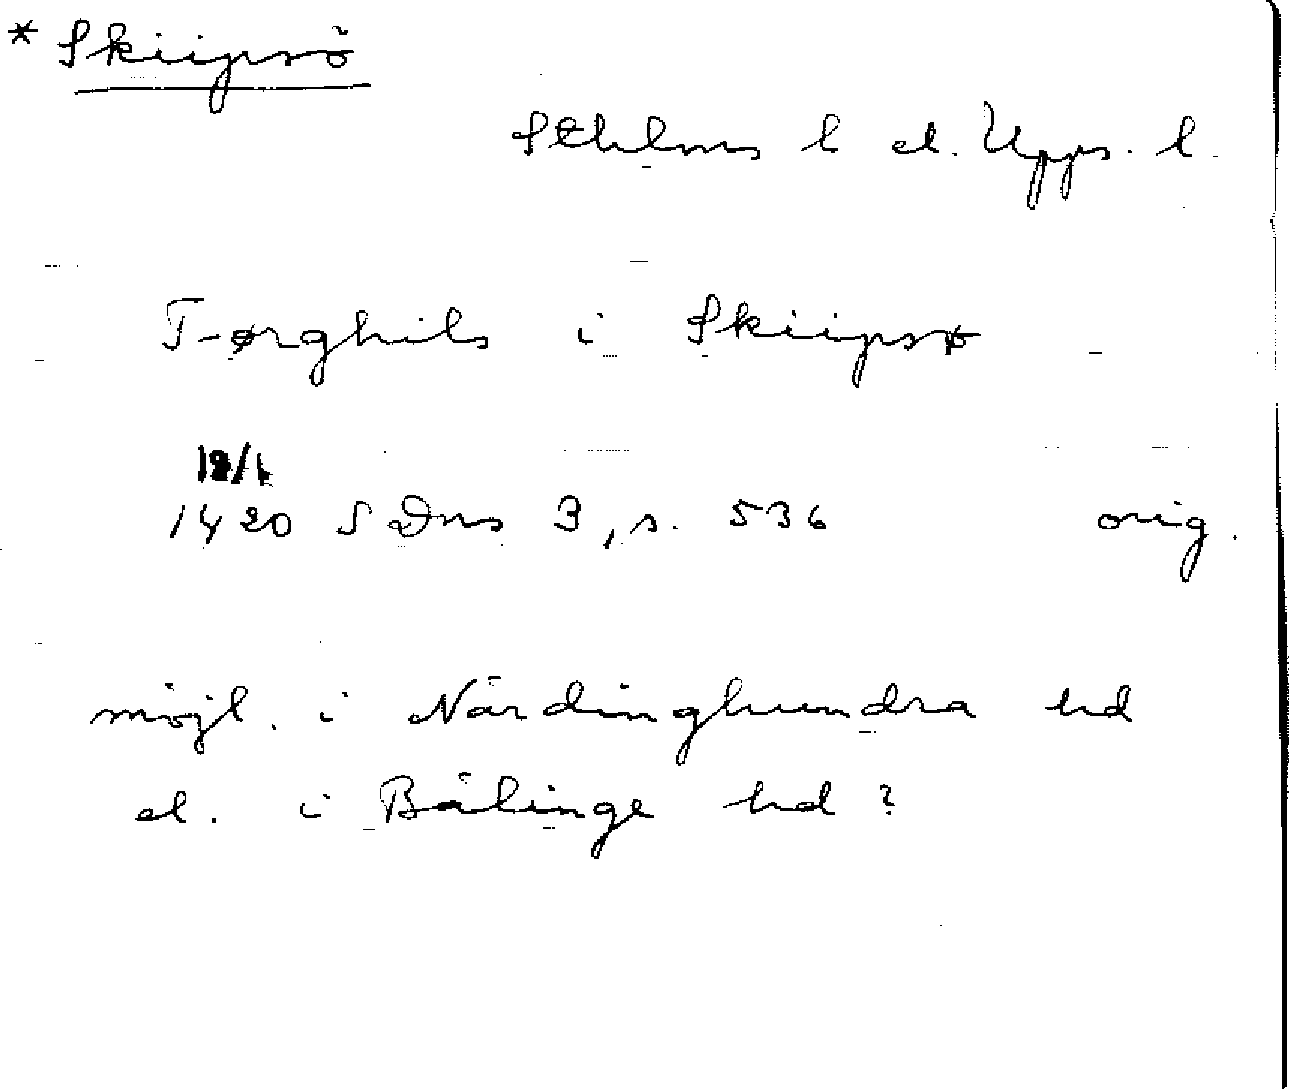 * Skiipsö
Sthlms l el. Upps. l.
Tørghils i Skiipsø
1420 SDns 3, s. 536 orig.
möjl. i Närdinghundra hd
el. i Bälinge hd?